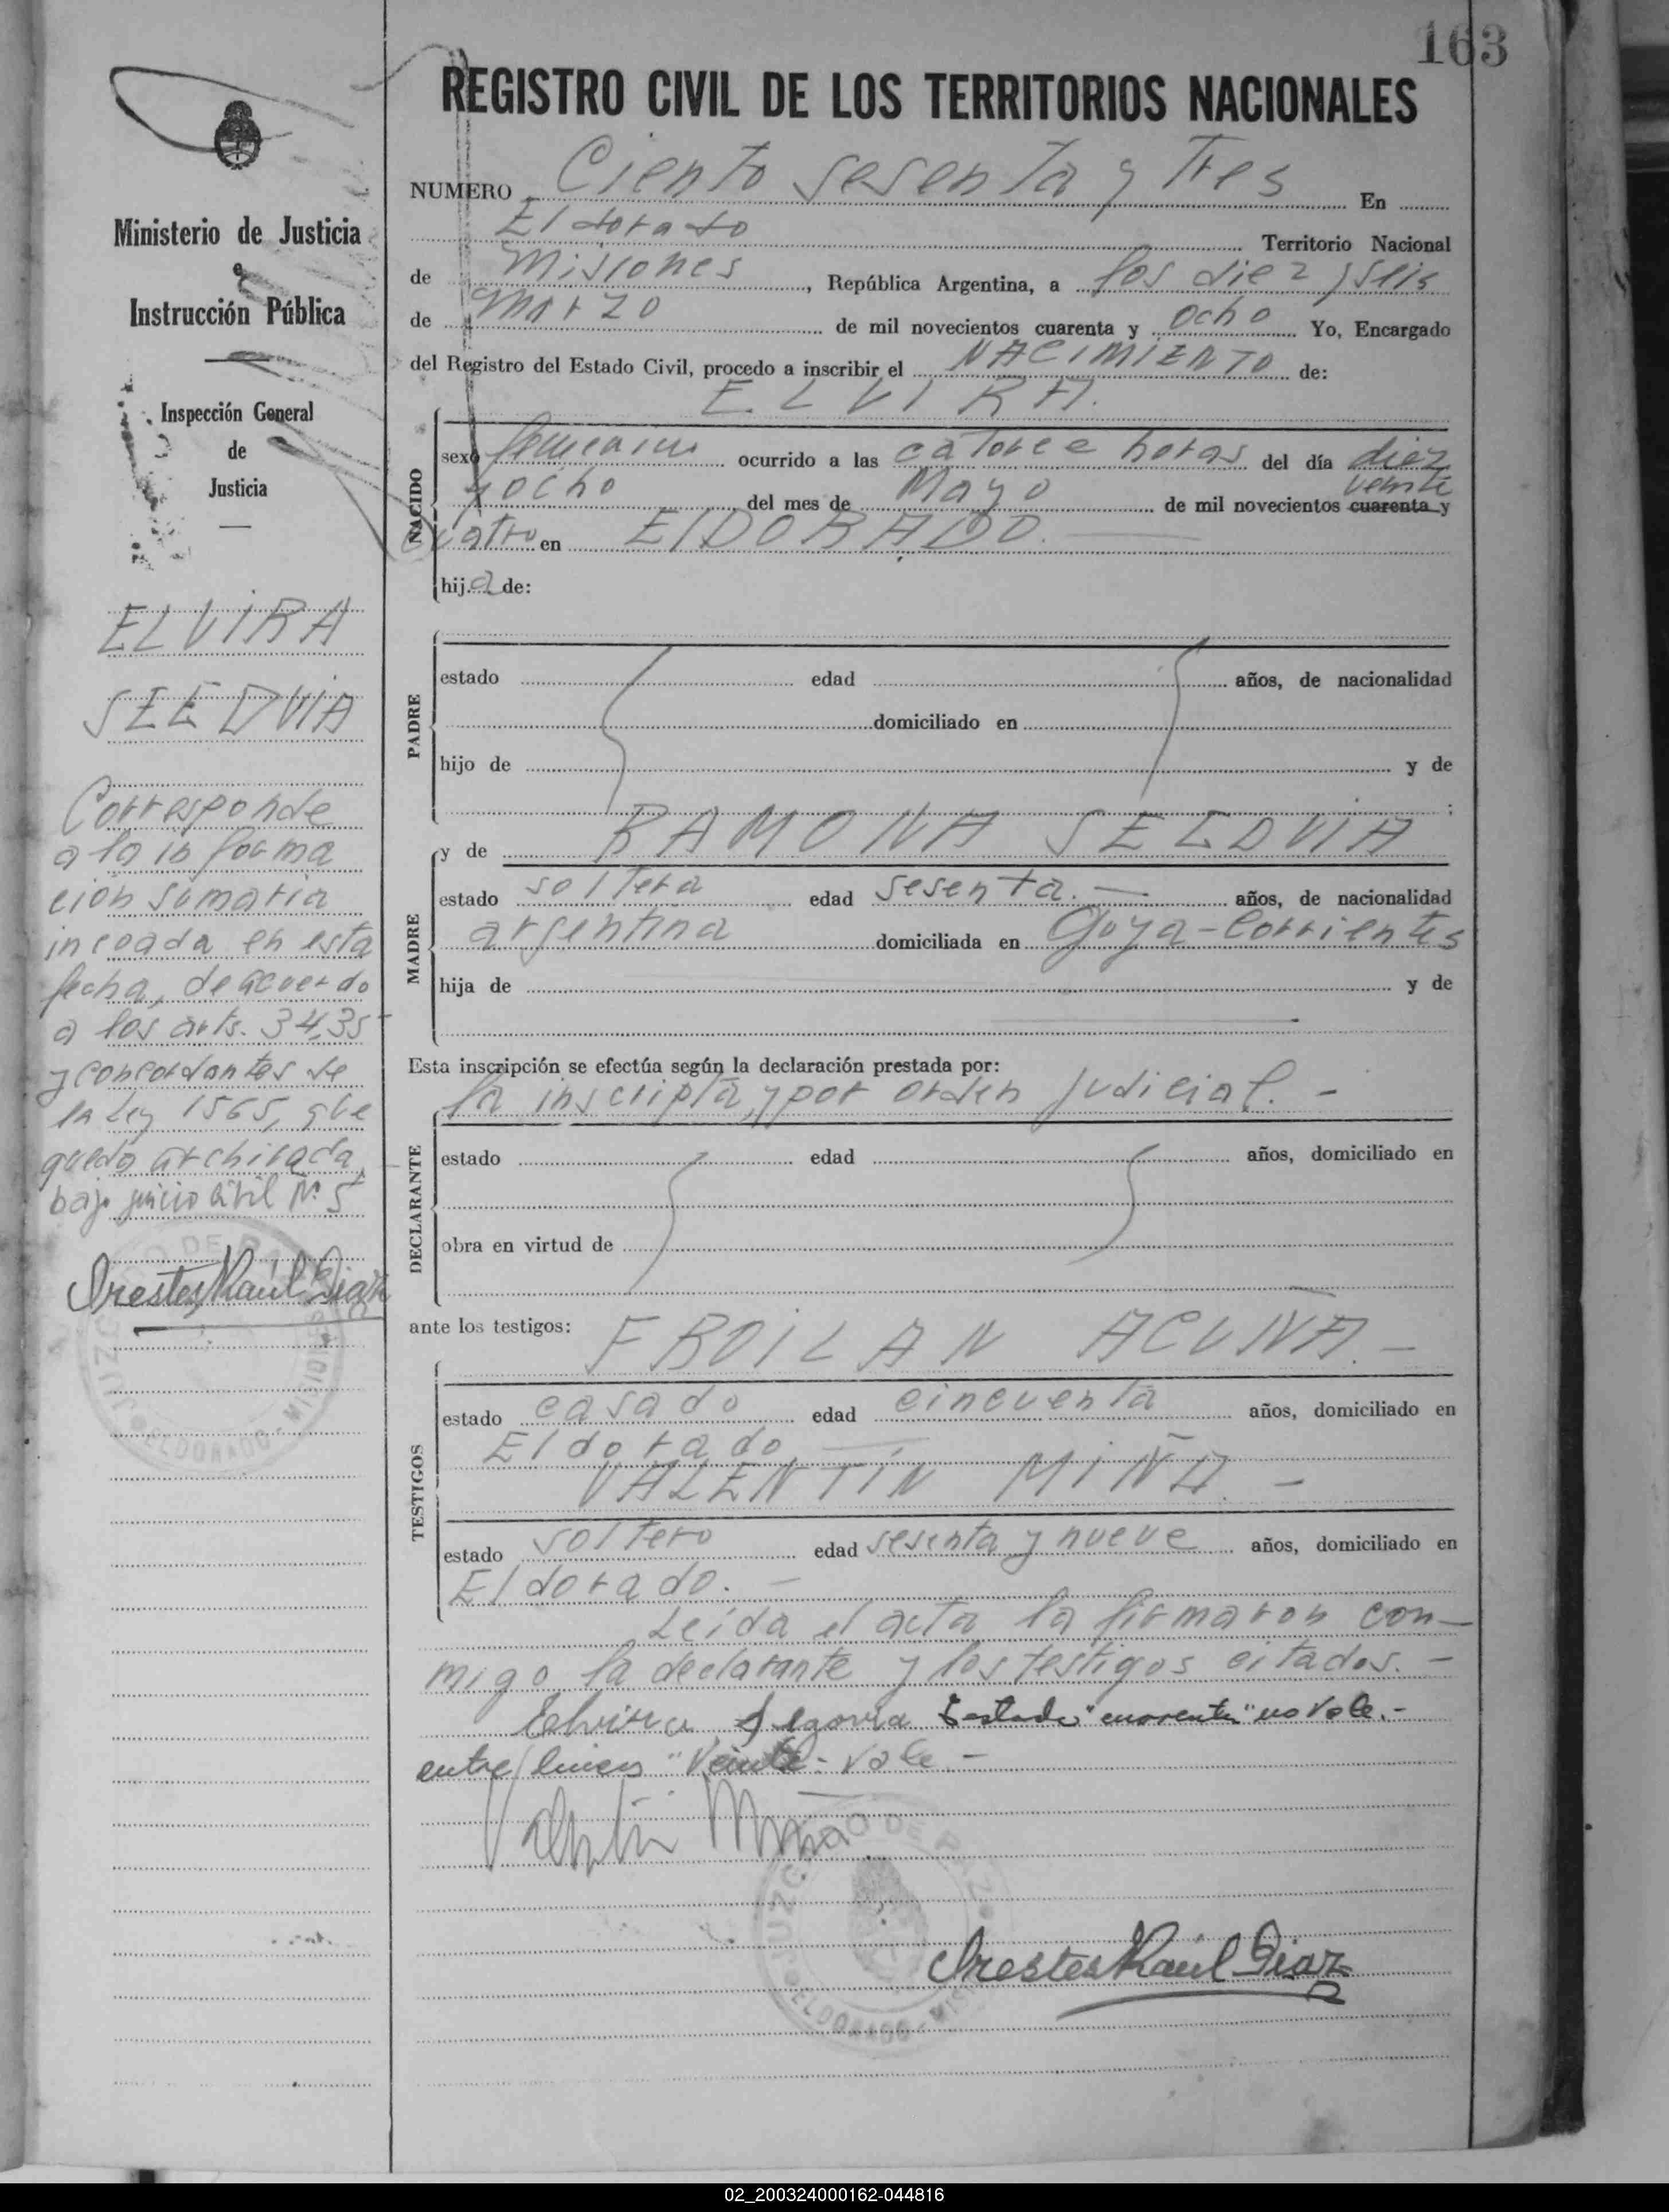 163
REGISTRO CIVIL DE LOS TERRITORIOS NACIONALES
NUMERO Ciento sesenta y Tres En
Eldorado Territorio Nacional
de Misiones, República Argentina, a los diez y seis
de Marzo de mil novecientos cuarenta y ocho Yo, Encargado
del Registro del Estado Civil, procedo a inscribir el NACIMIENTO de:
ELVIRA.
NACIDO
sexo femenino ocurrido a las catorce horas del día diez
y ocho del mes de Mayo de mil novecientos cuarenta y
veinte
cuatro en ElDORADO.
hija de:
PADRE
estado edad años, de nacionalidad
domiciliado en
hijo de y de
;
MADRE
y de RAMONA SEGOVIA
estado soltera edad sesenta.— años, de nacionalidad
argentina domiciliada en Goya-Corrientes
hija de y de
Esta inscripción se efectúa según la declaración prestada por:
la inscripta, y por orden judicial. -
DECLARANTE
estado edad años, domiciliado en
obra en virtud de
ante los testigos: FROILAN ACUÑA. -
TESTIGOS
estado casado edad cincuenta años, domiciliado en
Eldorado
VALENTIN MIÑO. -
estado soltero edad sesenta y nueve años, domiciliado en
Eldorado. -
Leida el acta la firmaron con-
migo la declarante y los testigos citados. -
Elvira Segovia Testado "cuarenta" no vale.-
entre lineas "Veinte" - vale -
Valentin Miño
JUZGADO DE PAZ
ELDORADO - MIS
Orestes Raúl Diaz
Ministerio de Justicia
e
Instrucción Pública
Inspección General
de
Justicia
ELVIRA
SEGOVIA
Corresponde
a la informa
ción sumaria
incoada en esta
fecha, de acuerdo
a los arts. 34,35
y concordantes de
la Ley 1565, que
queda archivada,
bajo juicio civil Nº 5
Orestes Raúl Diaz
JUZGADO DE PAZ
ELDORADO - MISIONES
02_200324000162-044816